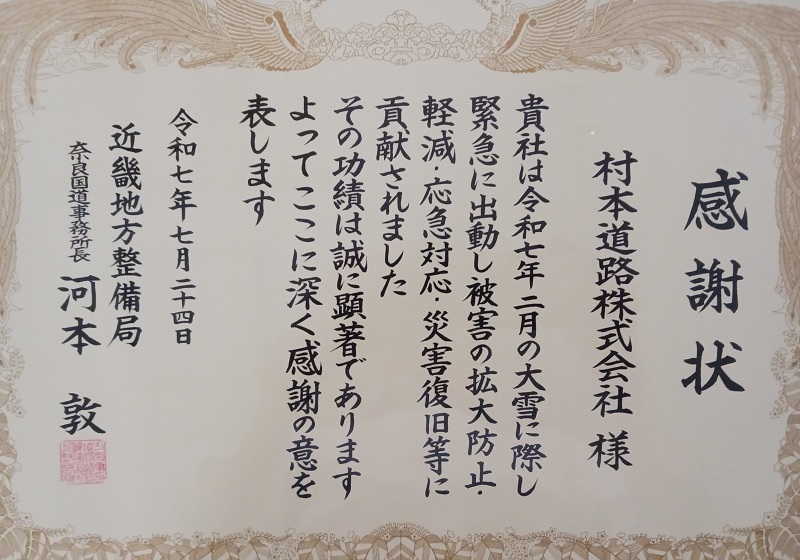 感謝状
村本道路株式会社 様
貴社は令和七年二月の大雪に際し
緊急に出動し被害の拡大防止・
軽減・応急対応・災害復旧等に
貢献されました
その功績は誠に顕著であります
よってここに深く感謝の意を
表します
令和七年七月二十四日
近畿地方整備局
奈良国道事務所長 河本 敦